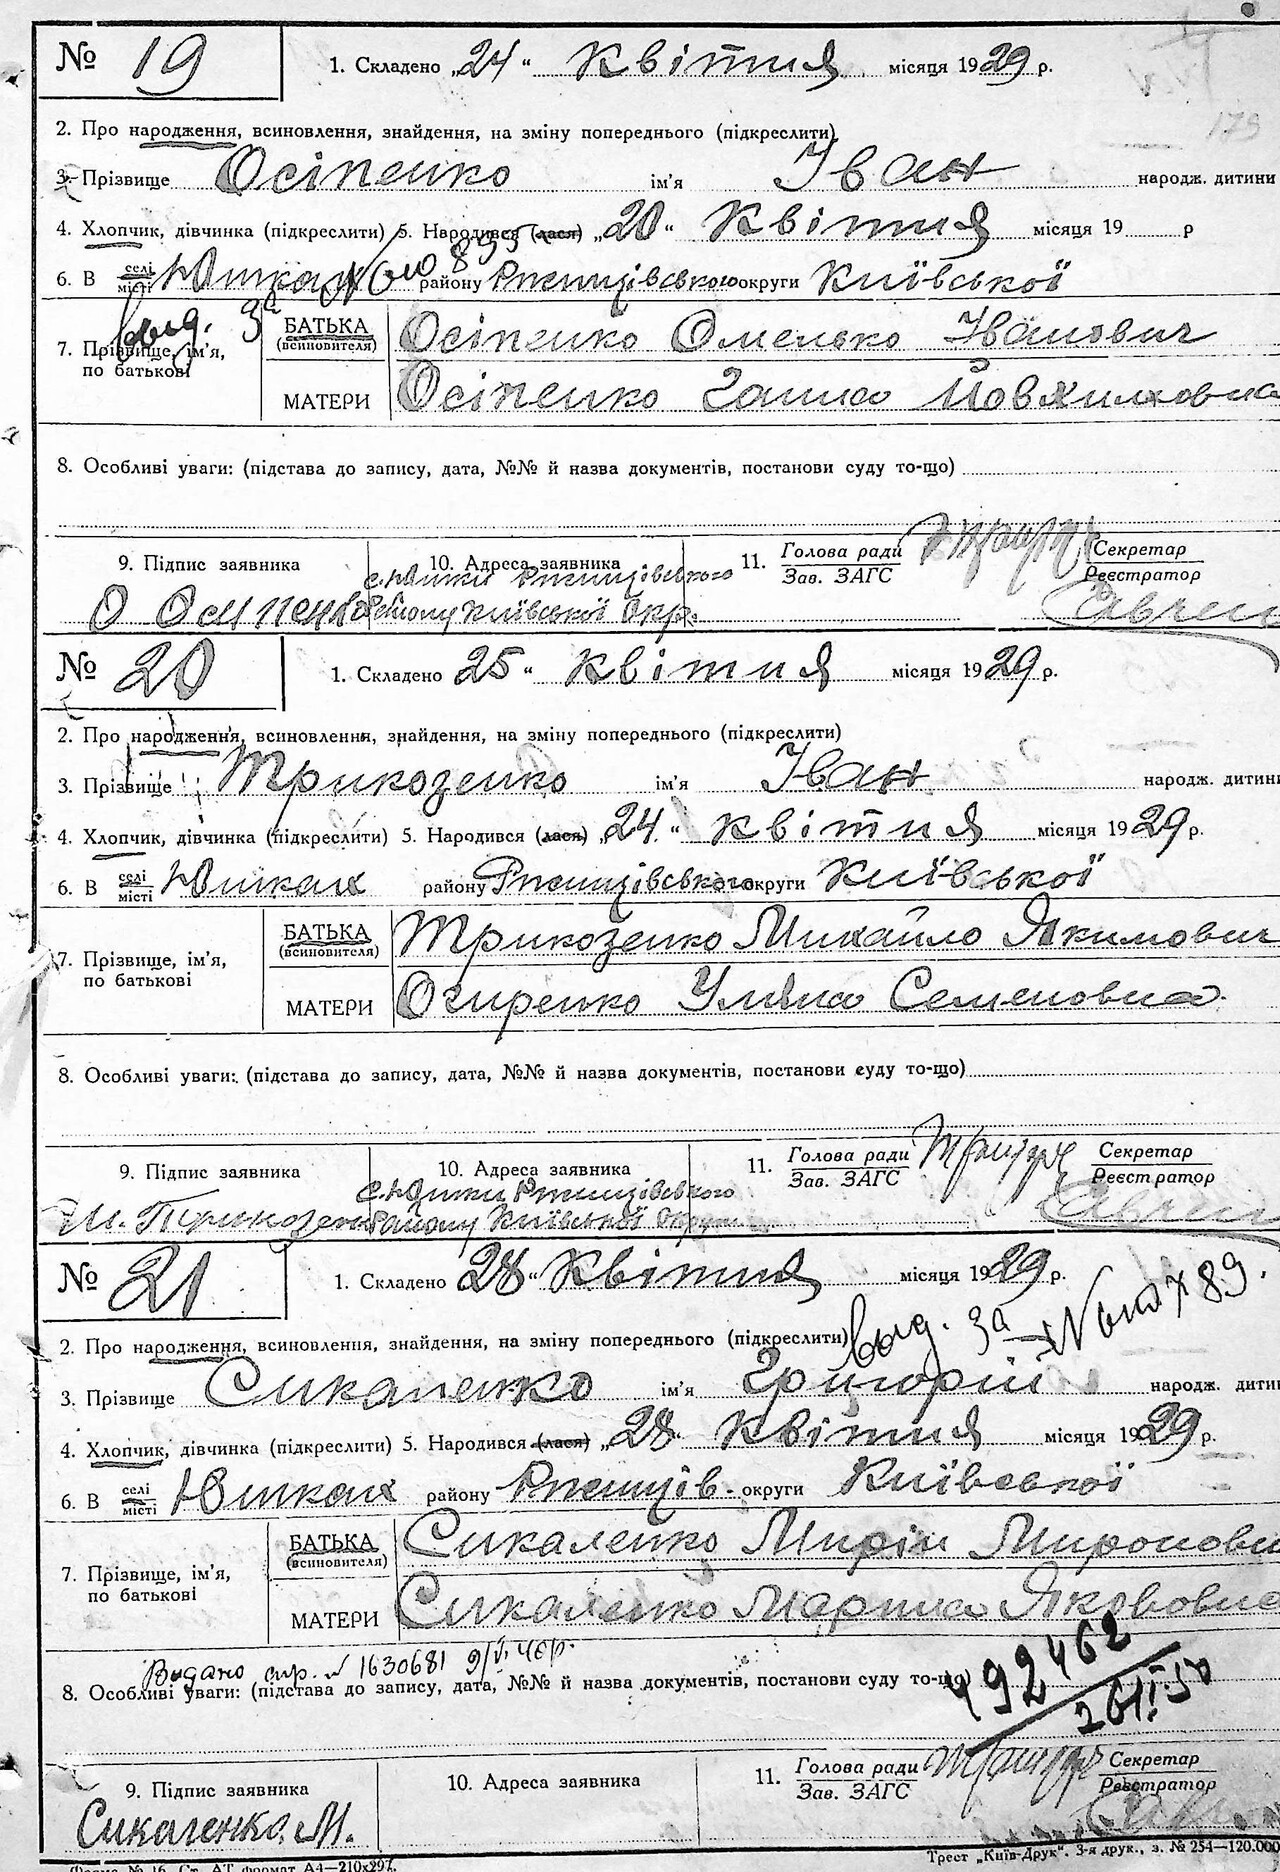 № 19
1. Складено „24“ Квітня місяця 1929 р.
179
2. Про народження, всиновлення, знайдення, на зміну попереднього (підкреслити)
3. Прізвище Осіпенко ім'я Іван народж. дитини
4. Хлопчик, дівчинка (підкреслити) 5. Народився (лася) „20“ Квітня місяця 19 р
6. В селі/місті Юшках району Ржищівського округи Київської
7. Прізвище, ім'я, по батькові
БАТЬКА (всиновителя) Осіпенко Омелько Іванович
МАТЕРИ Осіпенко Ганна
8. Особливі уваги: (підстава до запису, дата, №№ й назва документів, постанови суду то-що)
9. Підпис заявника 10. Адреса заявника 11. Голова ради / Зав. ЗАГС Секретар / Реєстратор
с. Юшки Ржищівського
О Осипенко району Київської Окр.
№ 20
1. Складено 25“ Квітня місяця 1929 р.
2. Про народження, всиновлення, знайдення, на зміну попереднього (підкреслити)
3. Прізвище Трикозенко ім'я Іван народж. дитини
4. Хлопчик, дівчинка (підкреслити) 5. Народився (лася) „24“ Квітня місяця 1929 р.
6. В селі/місті Юшках району Ржищівського округи Київської
7. Прізвище, ім'я, по батькові
БАТЬКА (всиновителя) Трикозенко Михайло Якимович
МАТЕРИ Огиренко Уляна Семеновна
8. Особливі уваги: (підстава до запису, дата, №№ й назва документів, постанови суду то-що)
9. Підпис заявника 10. Адреса заявника 11. Голова ради / Зав. ЗАГС Секретар / Реєстратор
с. Юшки Ржищівського
району Київської Округи
№ 21
1. Складено 28“ Квітня місяця 1929 р.
2. Про народження, всиновлення, знайдення, на зміну попереднього (підкреслити)
3. Прізвище Сикаленко ім'я Григорій народж. дитини
4. Хлопчик, дівчинка (підкреслити) 5. Народився (лася) „28“ Квітня місяця 1929 р.
6. В селі/місті Юшках району Ржищів. округи Київської
7. Прізвище, ім'я, по батькові
БАТЬКА (всиновителя) Сикаленко Мирін
МАТЕРИ Сикаленко Марина Якововна
Видано спр. № 1630681
8. Особливі уваги: (підстава до запису, дата, №№ й назва документів, постанови суду то-що)
492462
9. Підпис заявника 10. Адреса заявника 11. Голова ради / Зав. ЗАГС Секретар / Реєстратор
Сикаленко, М.
Форма № 16. Ст. АТ. формат А4—210х297.
Трест „Київ-Друк“. 3-я друк., з. № 254—120.000